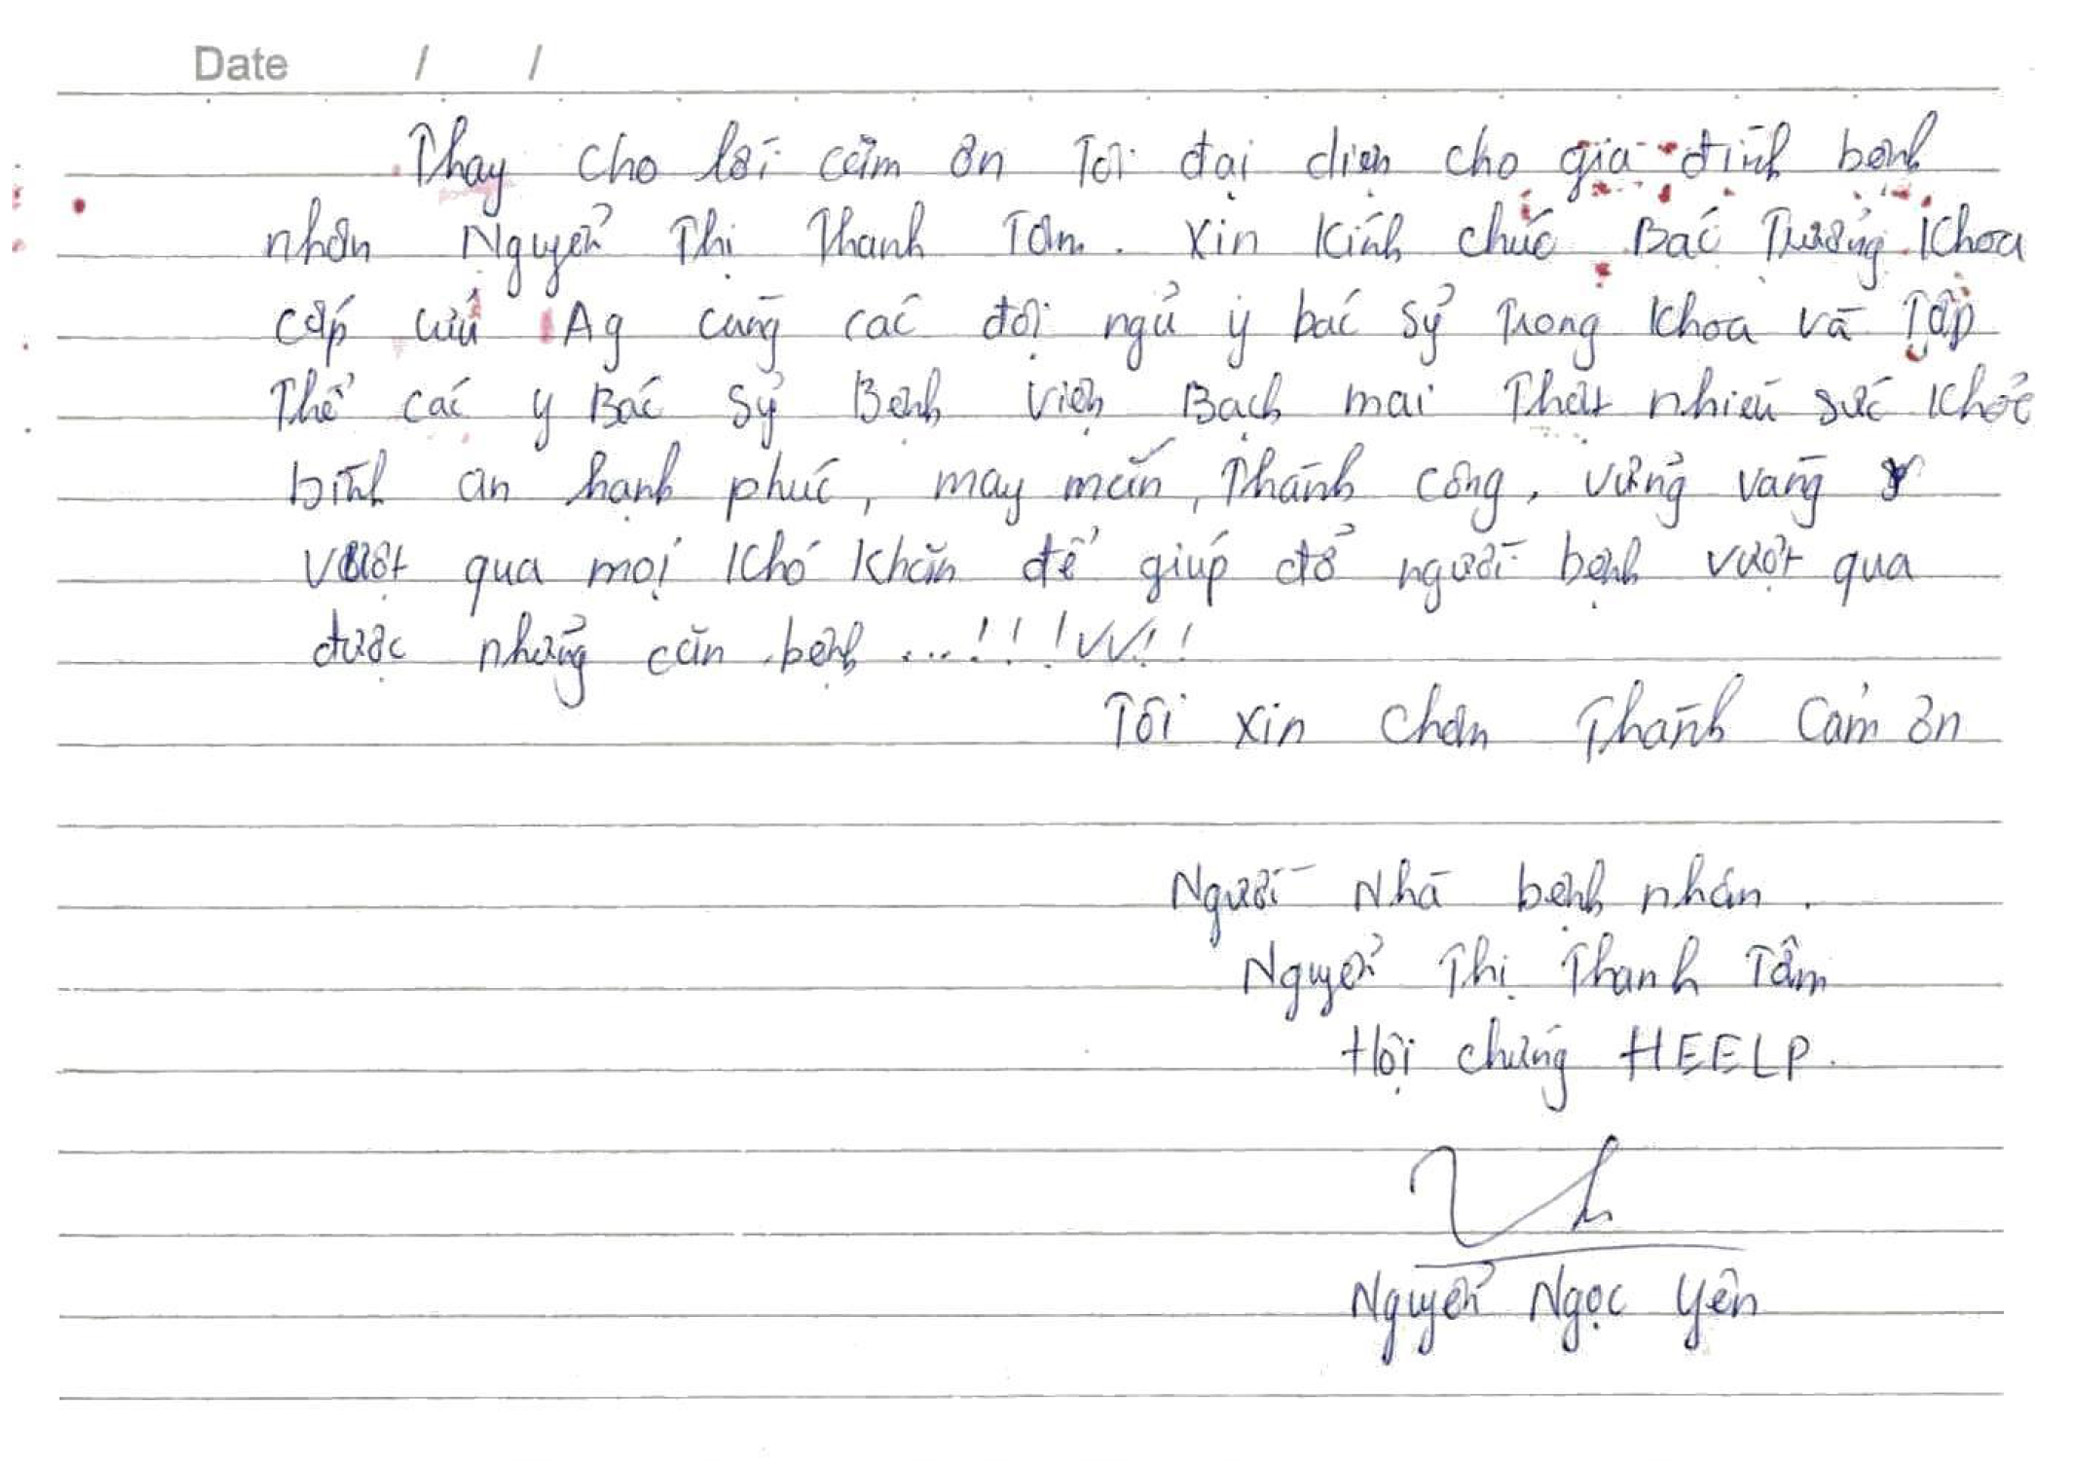 Date / /
Thay cho lời cảm ơn Tôi đại diện cho gia đình bệnh
nhân Nguyễn Thị Thanh Tâm. Xin Kính chúc Bác Trưởng Khoa
cấp cứu A9 cùng các đội ngủ y bác sỷ Trong Khoa và Tập
Thể các y Bác sỷ Bệnh viện Bạch mai Thật nhiều sức Khỏe
bình an hạnh phúc, may mắn, Thành công, vửng vàng
vượt qua mọi Khó Khăn để giúp đở người bệnh vượt qua
được nhửng căn bệnh ...!!!VV!!
Tôi xin Chân Thành Cảm ơn
Người Nhà bệnh nhân.
Nguyển Thị Thanh Tâm
Hội chứng HEELP.
Nguyễn Ngọc Yên